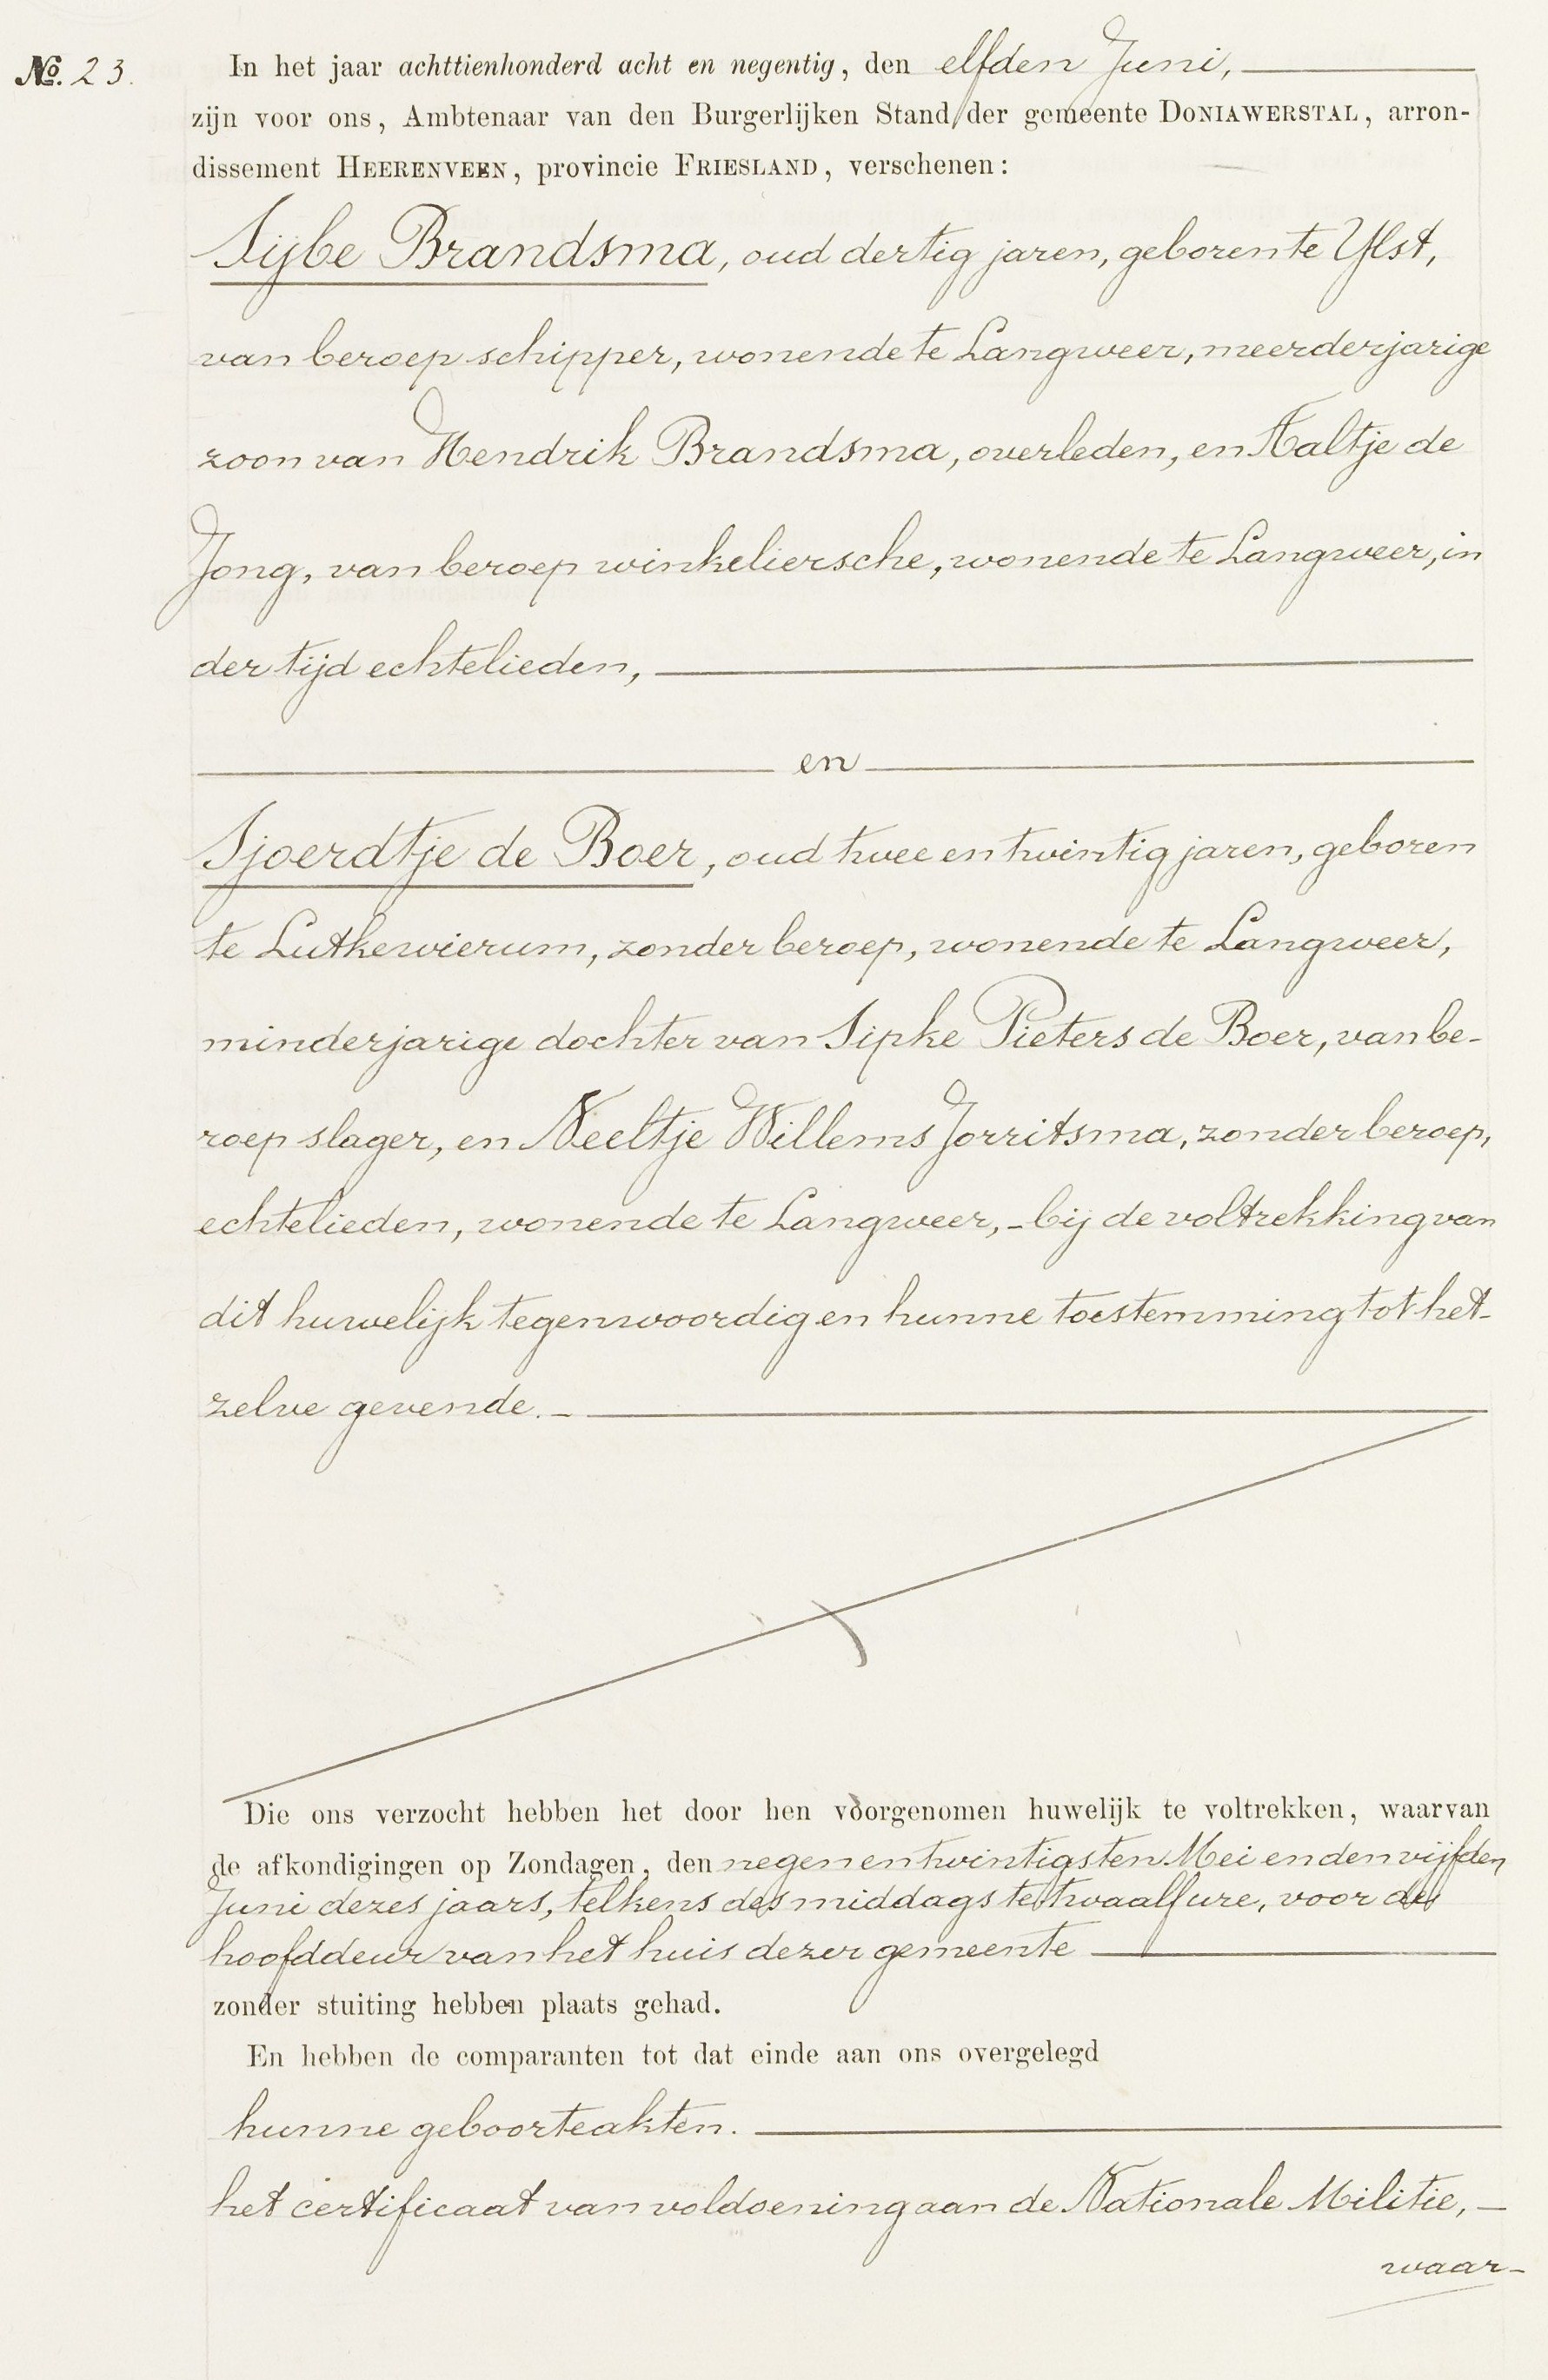 No. 23.
In het jaar achttienhonderd acht en negentig, den elfden Juni,
zijn voor ons, Ambtenaar van den Burgerlijken Stand der gemeente DONIAWERSTAL, arron-
dissement HEERENVEEN, provincie FRIESLAND, verschenen:
Sijbe Brandsma, oud dertig jaren, geboren te Ylst,
van beroep schipper, wonende te Langweer, meerderjarige
zoon van Hendrik Brandsma, overleden, en Aaltje de
Jong, van beroep winkeliersche, wonende te Langweer, in
der tijd echtelieden,
en
Sjoerdtje de Boer, oud twee en twintig jaren, geboren
te Lutkewierum, zonder beroep, wonende te Langweer,
minderjarige dochter van Sipke Pieters de Boer, van be-
roep slager, en Neeltje Willems Jorritsma, zonder beroep,
echtelieden, wonende te Langweer, - bij de voltrekking van
dit huwelijk tegenwoordig en hunne toestemming tot het-
zelve gevende. -
Die ons verzocht hebben het door hen voorgenomen huwelijk te voltrekken, waarvan
de afkondigingen op Zondagen, den negen en twintigsten Mei en den vijfden
Juni dezes jaars, telkens des middags te twaalf ure, voor de
hoofddeur van het huis dezer gemeente
zonder stuiting hebben plaats gehad.
En hebben de comparanten tot dat einde aan ons overgelegd
hunne geboorteakten.
het certificaat van voldoening aan de Nationale Militie, -
waar-